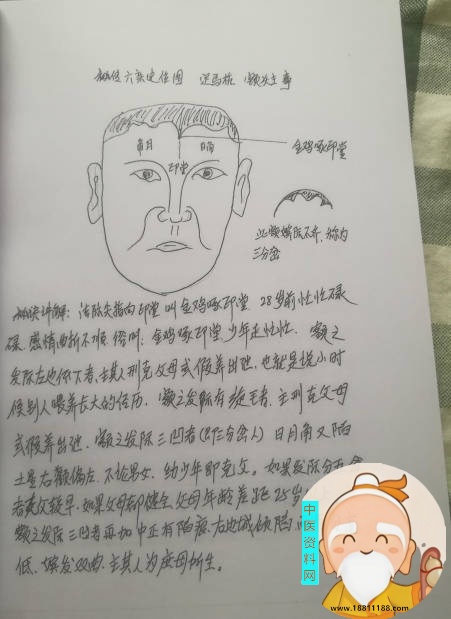 秘传六亲定位图 远马桩 额头主事
月角
日角
印堂
金鸡啄印堂
此额发际不齐,称为
三分岔
秘诀讲解:发际尖指向印堂叫金鸡啄印堂,28岁前忙忙碌
碌,感情曲折不顺,俗叫:金鸡啄印堂,少年走忙忙。额之
发际左边低下者,主其人刑克父母或假养出继,也就是说小时
候别人喂养长大的经历,额之发际有旋毛者,主刑克父母
或假养出继,额之发际三凹者(即三分岔人)日月角又陷
土星右额偏左,不论男女,幼少年即克父。如果发际分五
者丧父较早,如果父母都健全,父母年龄差距25岁
额之发际三凹者再加中正有陷痕,右边城倾陷
低,鬓发双曲,主其人为庶母所生。
中医资料网
www.18811188.com